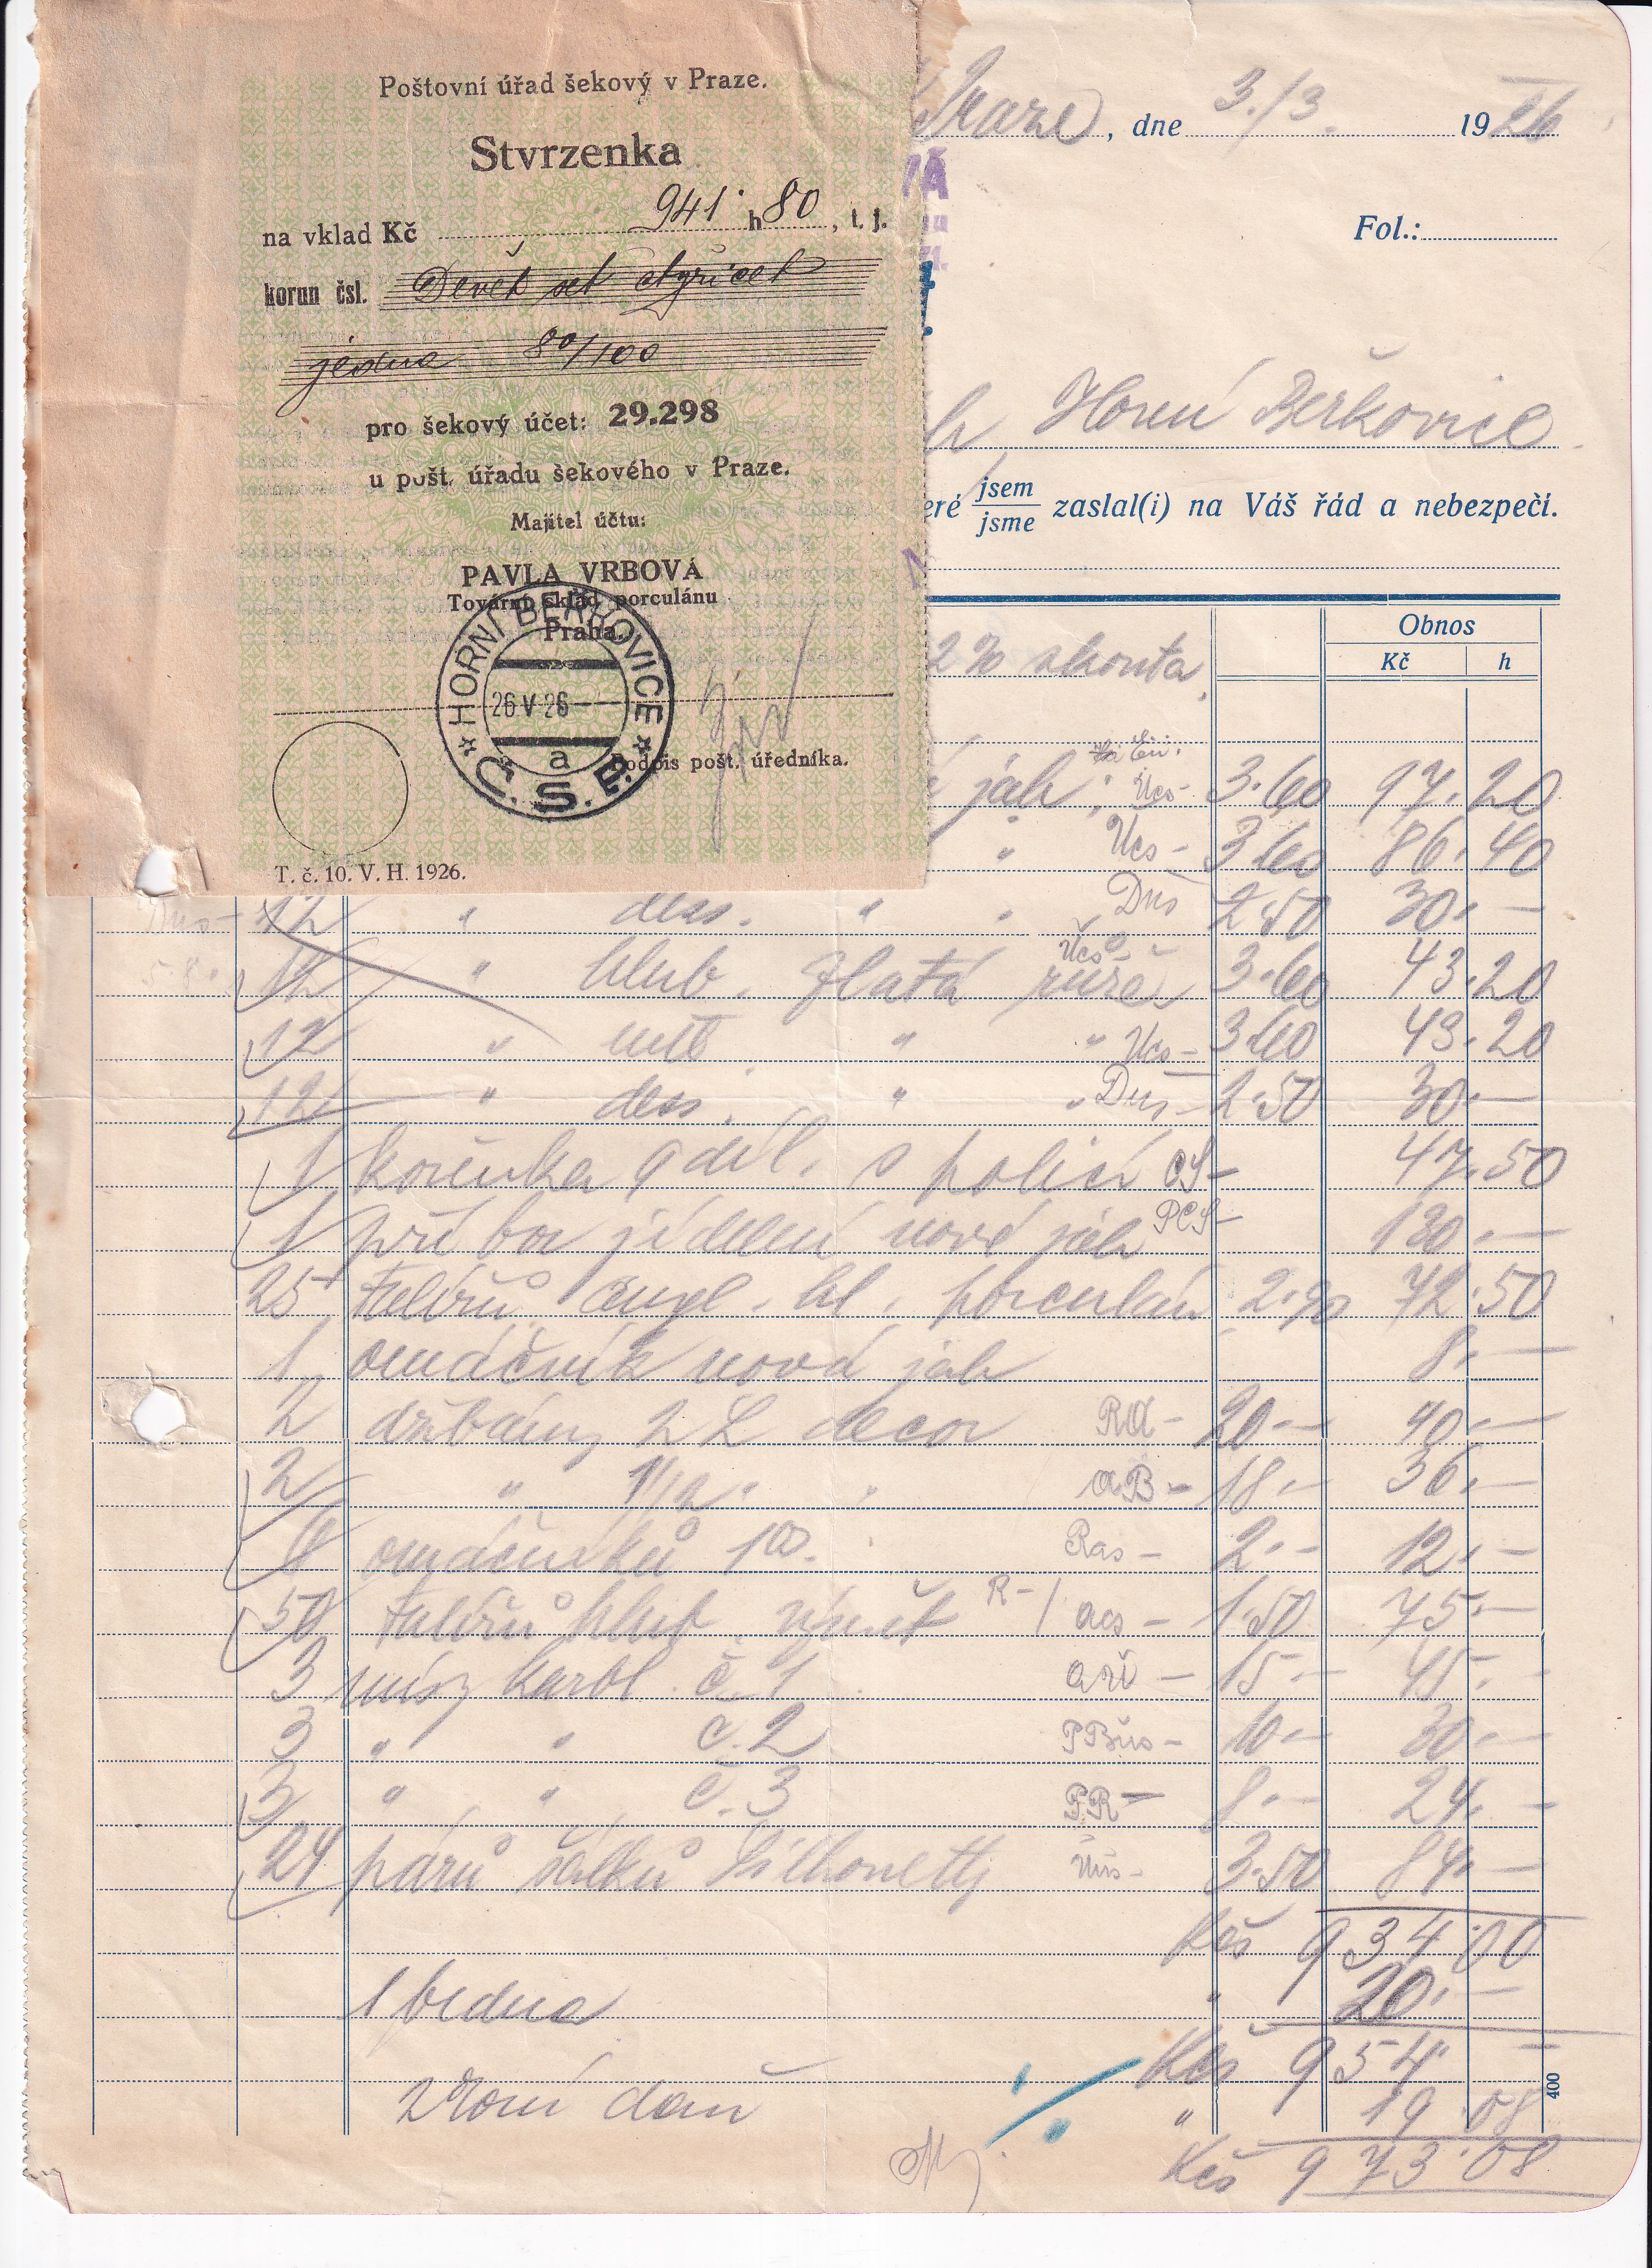 Poštovní úřad šekový v Praze.
Stvrzenka
na vklad Kč 941· h 80, t. j.
korun čsl. Devět set čtyřicet
jedna 80/100
pro šekový účet: 29.298
u pošt. úřadu šekového v Praze.
Majitel účtu:
PAVLA VRBOVÁ
Tovární sklad porculánu
Praha.
HORNÍ BEŘKOVICE
26 V 26
a
Č. S. P.
Podpis pošt. úředníka.
T. č. 10. V. H. 1926.
Praze, dne 3./3. 1926
VÁ
Fol.:
Horní Beřkovice
eré jsem/jsme zaslal(i) na Váš řád a nebezpečí.
Obnos
2% skonta Kč h
jak Ucs- 3·60 97·20
" Ucs- 3·60 86·40
12 " dess. " " Dus 2·50 30·—
12 " hlub. Zlatá růže Ucs- 3·60 43·20
12 " " " Ucs- 3·60 43·20
12 " dess. " " Dus- 2·50 30·—
1 kořenka 9 díl. s policí CS- 47·50
1 příbor jídelní nové jak PCS- 130·—
25 talířů engl. hl. porculán 2·90 72·50
1 omáčník nová jak 8·—
2 džbány 2 L decor Rd- 20·— 40·—
2 " 1 1/2 " " aB- 18·— 36·—
6 omáčníků 1a. Ras- 2·— 12·—
50 talířů hlub. výmět R-/ acs- 1·50 75·—
3 mísy karol. č. 1 15·— 45·—
3 " " č. 2 PBus- 10·— 30·—
3 " " č. 3 PR- 8·— 24·—
24 párů šálků Silhouetty 3·50 84·—
Kčs 934·00
1 bedna " 20·—
Kčs 954·—
daň " 19·08
Kčs 973·08
400